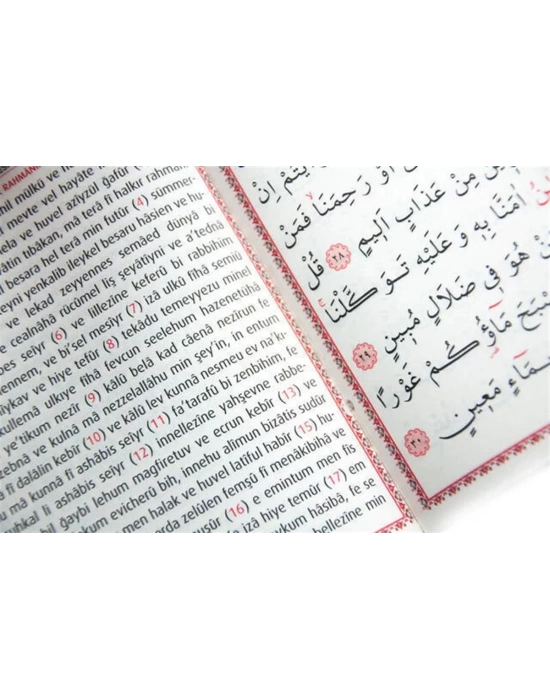 RAHMAN
mülkü ve
meyte vel hayâte
ve huvel azîyzül gafûr
tıbâkan, mâ terâ fî halkır rahmân
besara hel terâ min futûr (4) sümmer-
yenkalib ileykel besaru hâsien ve hu-
lekad zeyyennes semâed dünyâ bi
cealnâhâ rücûmel liş şeyâtiyni ve a'tednâ
seiyr (6) ve lillezîne keferû bi rabbihim
ve bi'sel mesiyr (7) izâ ulkû fîhâ semiû
ve hiye tefûr (8) tekâdu temeyyezu minel
ulkıye fîhâ fevcun seelehum hazenetühâ
e'tikum nezîr (9) kâlû belâ kad câenâ nezîrun fe
ve kulnâ mâ nezzelallâhu min şey'in, in entum
fî dalâlin kebîr (10) ve kâlû lev kunnâ nesmeu ev na'k-
mâ kunnâ fî ashâbis seiyr (11) fa'tarafû bi zenbihim, fe
fi ashâbis seiyr (12) innellezîne yahşevne rabbe-
bil ğaybi lehum mağfiretuv ve ecrun kebîr (13) ve
evicherû bih, innehu alîmun bizâtis sudûr
men halak ve huvel latîful habîr (15) hu-
zelûlen femşû fî menâkibihâ ve
(16) e emintum men fis
izâ hiye temûr (17) em
hâsibâ, fe se
min
اِنْ
اَوْ رَحِمَنَاۙ فَمَنْ
مِنْ عَذَابٍ اَلٖيمٍ ﴿٢٨﴾ قُلْ
اٰمَنَّا بِهٖ وَعَلَيْهِ تَوَكَّلْنَاۚ
هُوَ فٖى ضَلَالٍ مُبٖينٍ ﴿٢٩﴾
مَٓاؤُ۬كُمْ غَوْرًا
مَعٖينٍ ﴿٣٠﴾